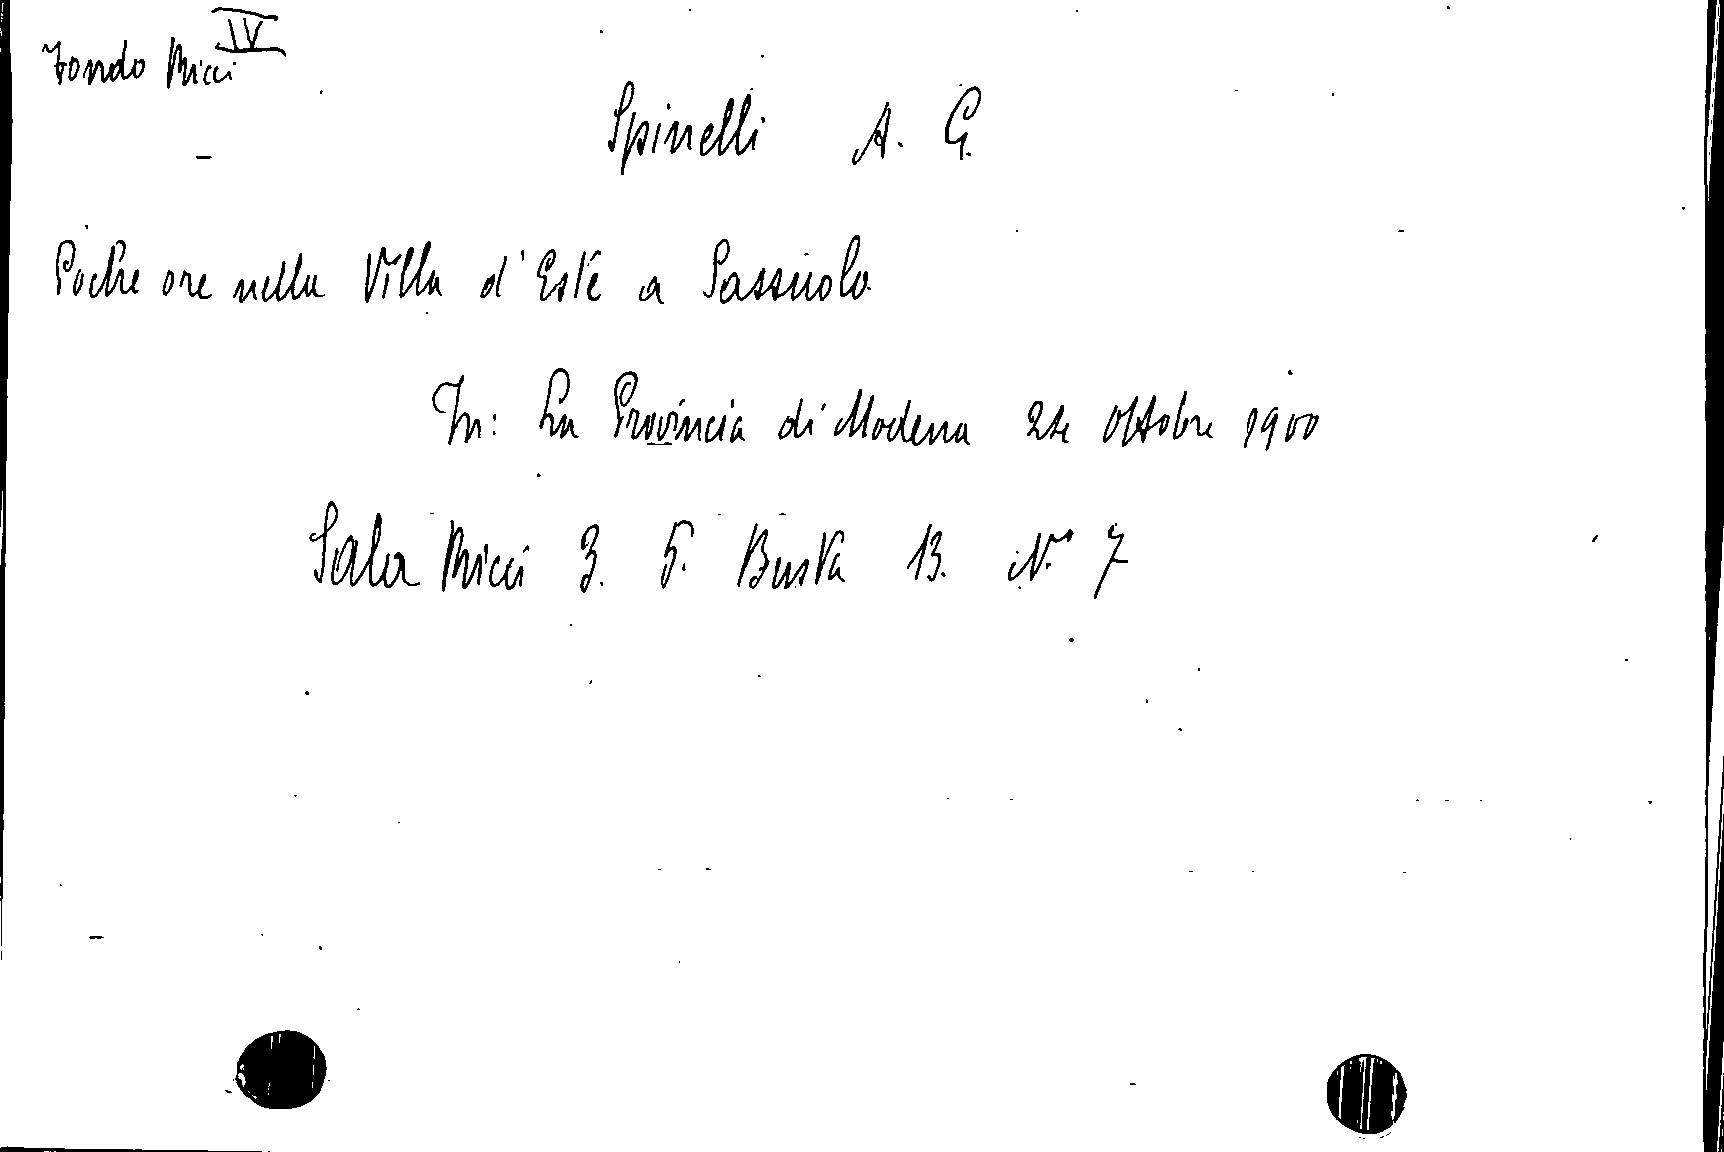 Fondo Ricci IV
Spinelli A. G.
Poche ore nella Villa d'Este a Sassuolo
In: La Provincia di Modena 24 Ottobre 1900
Sala Ricci 3. 5. Busta 13. N.° 7